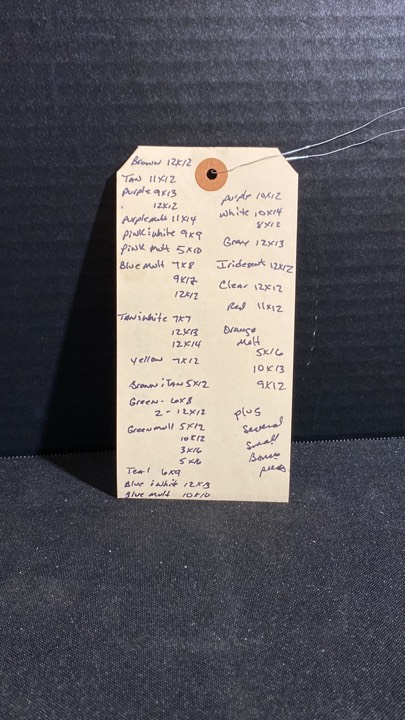 Brown 12x12
TAN 11x12
Purple 9x13
12x12
Purple mult 11x14
Pink i white 9x9
Pink mult 5x10
Blue mult 7x8
9x12
12x12
TAN i white 7x7
12x13
12x14
Yellow 7x12
Brown i TAN 5x12
Green - 6x8
2 - 12x12
Green mult 5x12
10x12
3x16
5x16
Teal 6x9
Blue i whit 12x13
Blue mult 10x10
purple 10x12
white 10x14
8x12
Gray 12x13
Iridesent 12x12
Clear 12x12
Red 11x12
Orange
mult
5x16
10x13
9x12
plus
several
small
Bonus